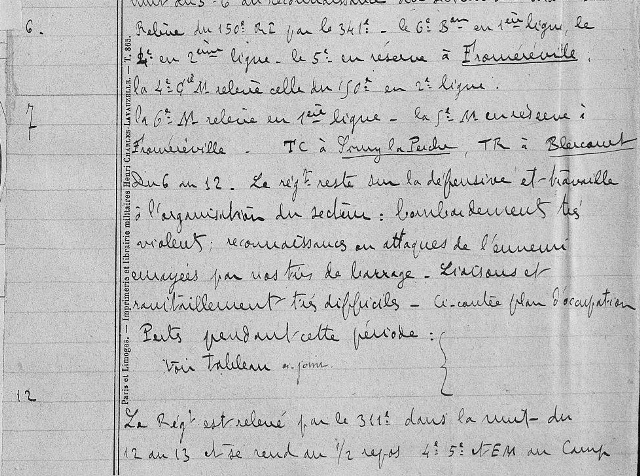 6.
Relève du 150e RI par le 341e - le 6e Bon en 1ère ligne, le
4e en 2ème ligne - le 5e en réserve à Froméréville.
la 4e Cie M relève celle du 150e en 2e ligne.
7
la 6e M relève en 1ère ligne - la 5e M en réserve à
Froméréville. TC à Sivry la Perche, TR à Blercourt
Du 6 au 12. Le régt reste sur la défensive et travaille
à l'organisation du secteur : bombardement très
violent ; reconnaissances ou attaques de l'ennemi
enrayées par nos tirs de barrage - Liaisons et
ravitaillement très difficiles - Ci-contre plan d'occupation
Pertes pendant cette période :
Voir tableau
12
Le Régt est relevé par le 311e dans la nuit du
12 au 13 et se rend au 1/2 repos 4e 5e et EM au Camp
Paris et Limoges. — Imprimerie et librairie militaires Henri CHARLES-LAVAUZELLE. — T. 865.